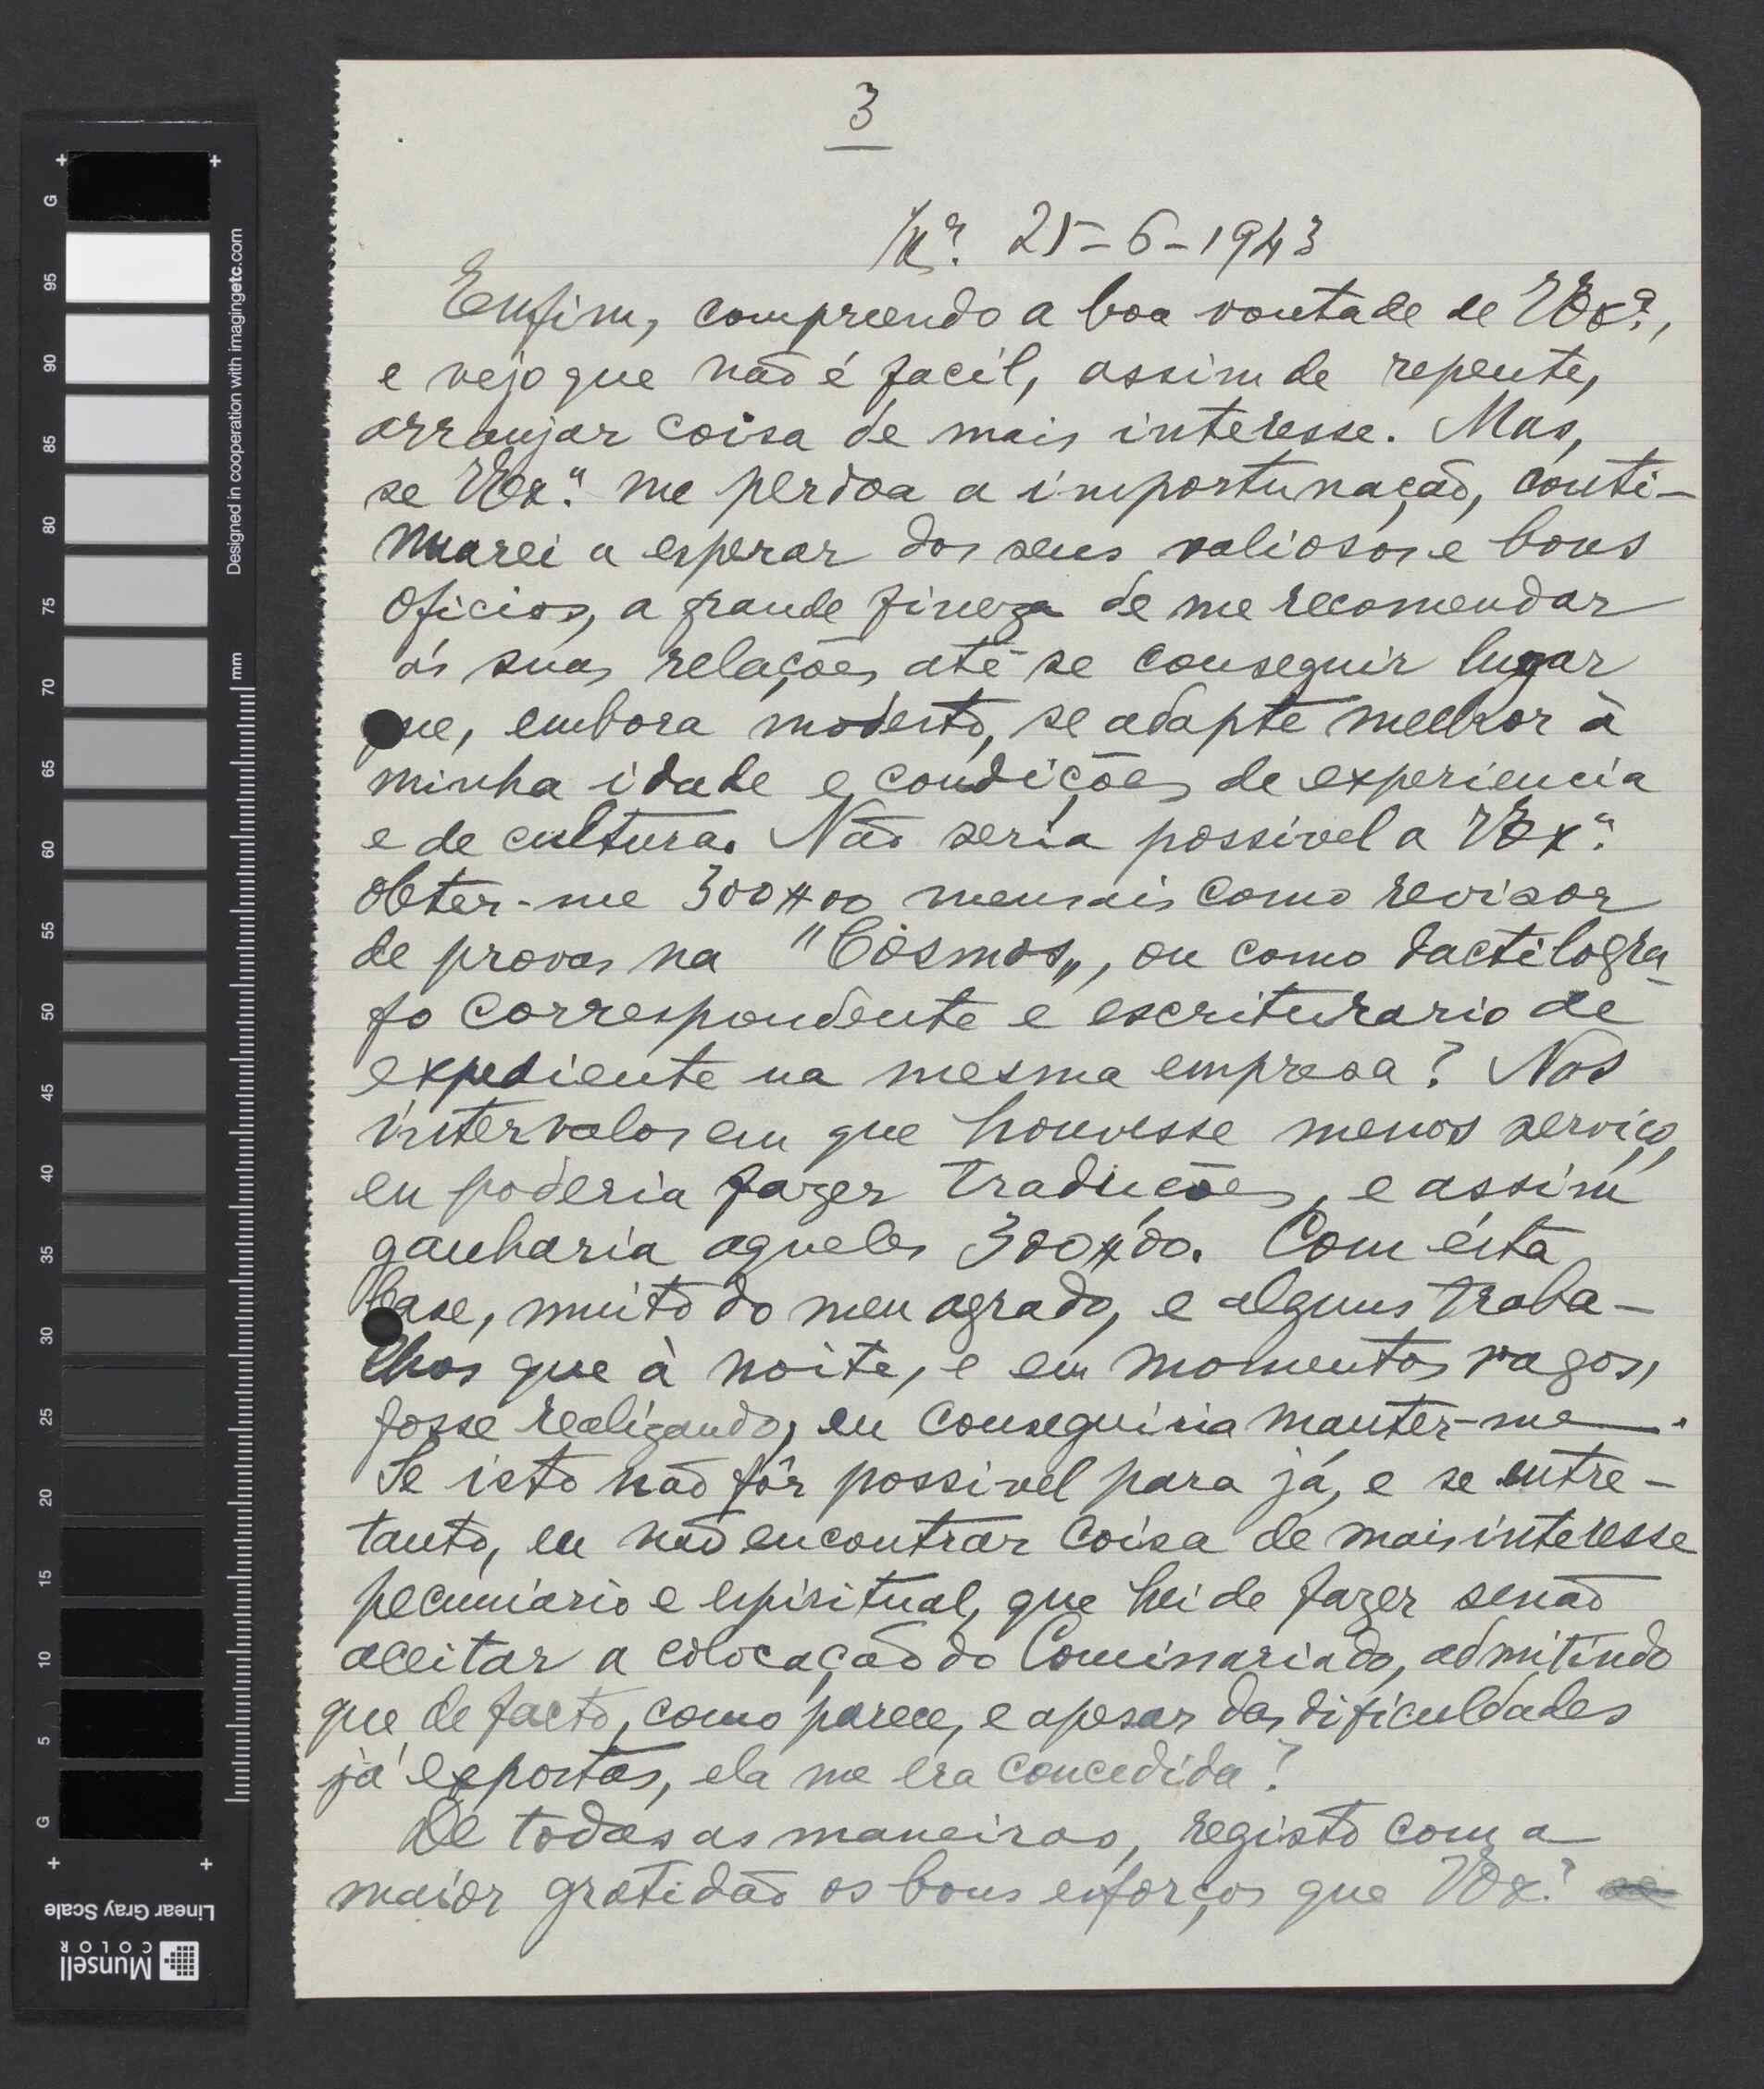 3
25-6-1943
Enfim, compreendo a boa vontade de VExª,
e vejo que não é facil, assim de repente,
arranjar coisa de mais interesse. Mas,
se VExª me perdoa a importunação, conti-
nuarei a esperar dos seus valiosos e bons
oficios, a grande fineza de me recomendar
ás suas relações até se conseguir lugar
que, embora modesto, se adapte melhor à
minha idade e condições de experiencia
e de cultura. Não seria possivel a VExª
obter-me 300$00 mensais como revisor
de provas na "Cósmos", ou como dactilogra-
fo correspondente e escriturario de
expediente na mesma empresa? Nos
intervalos em que houvesse menos serviço,
eu poderia fazer traduções, e assim
ganharia aqueles 300$00. Com ésta
base, muito do meu agrado, e alguns traba-
lhos que à noite, e em momentos vagos,
fosse realizando, eu conseguiria manter-me.
Se isto não fôr possivel para já, e se entre-
tanto, eu não encontrar coisa de mais interesse
pecuniário e espiritual, que hei de fazer senão
aceitar a colocação do Comissariado, admitindo
que de facto, como parece, e apesar das dificuldades
já expostas, ela me era concedida?
De todas as maneiras, registo com a
maior gratidão os bons esforços que VExª
Designed in cooperation with imagingetc.com
mm
G
95
90
85
80
75
70
65
60
55
50
45
40
35
30
25
20
15
10
5
G
Linear Gray Scale
Munsell
COLOR